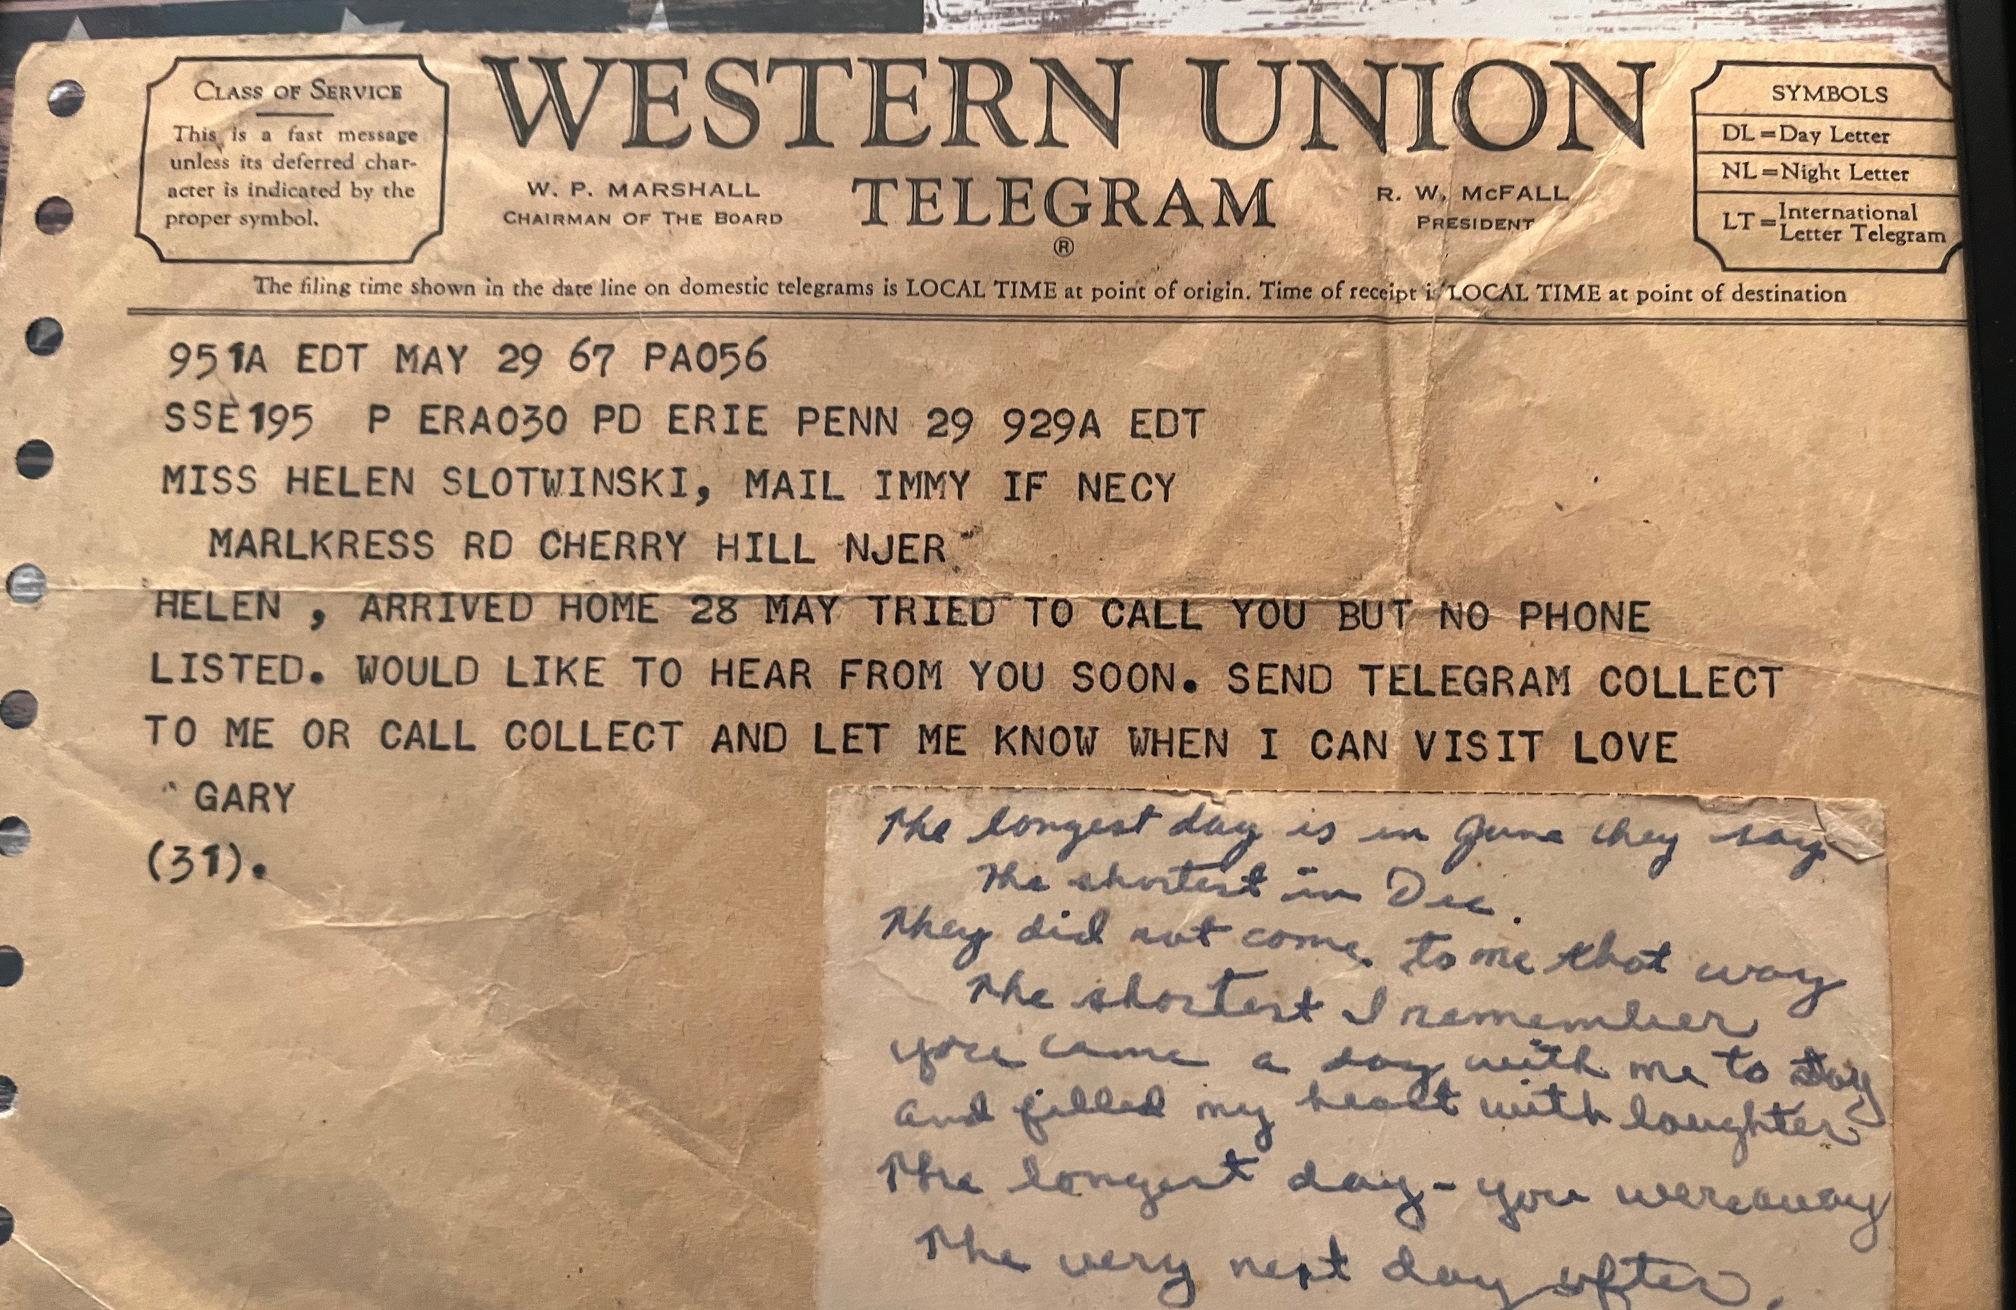 CLASS OF SERVICE
This is a fast message
unless its deferred char-
acter is indicated by the
proper symbol.
WESTERN UNION
TELEGRAM
®
W. P. MARSHALL
CHAIRMAN OF THE BOARD
R. W. McFALL
PRESIDENT
SYMBOLS
DL=Day Letter
NL=Night Letter
LT=International
Letter Telegram
The filing time shown in the date line on domestic telegrams is LOCAL TIME at point of origin. Time of receipt i LOCAL TIME at point of destination
951A EDT MAY 29 67 PA056
SSE195 P ERA030 PD ERIE PENN 29 929A EDT
MISS HELEN SLOTWINSKI, MAIL IMMY IF NECY
MARLKRESS RD CHERRY HILL NJER
HELEN , ARRIVED HOME 28 MAY TRIED TO CALL YOU BUT NO PHONE
LISTED. WOULD LIKE TO HEAR FROM YOU SOON. SEND TELEGRAM COLLECT
TO ME OR CALL COLLECT AND LET ME KNOW WHEN I CAN VISIT LOVE
GARY
(31).
The longest day is in June they say
The shortest in Dec.
They did not come to me that way
The shortest I remember
you came a day with me to stay
and filled my heart with laughter
The longest day - you were away
The very next day after.